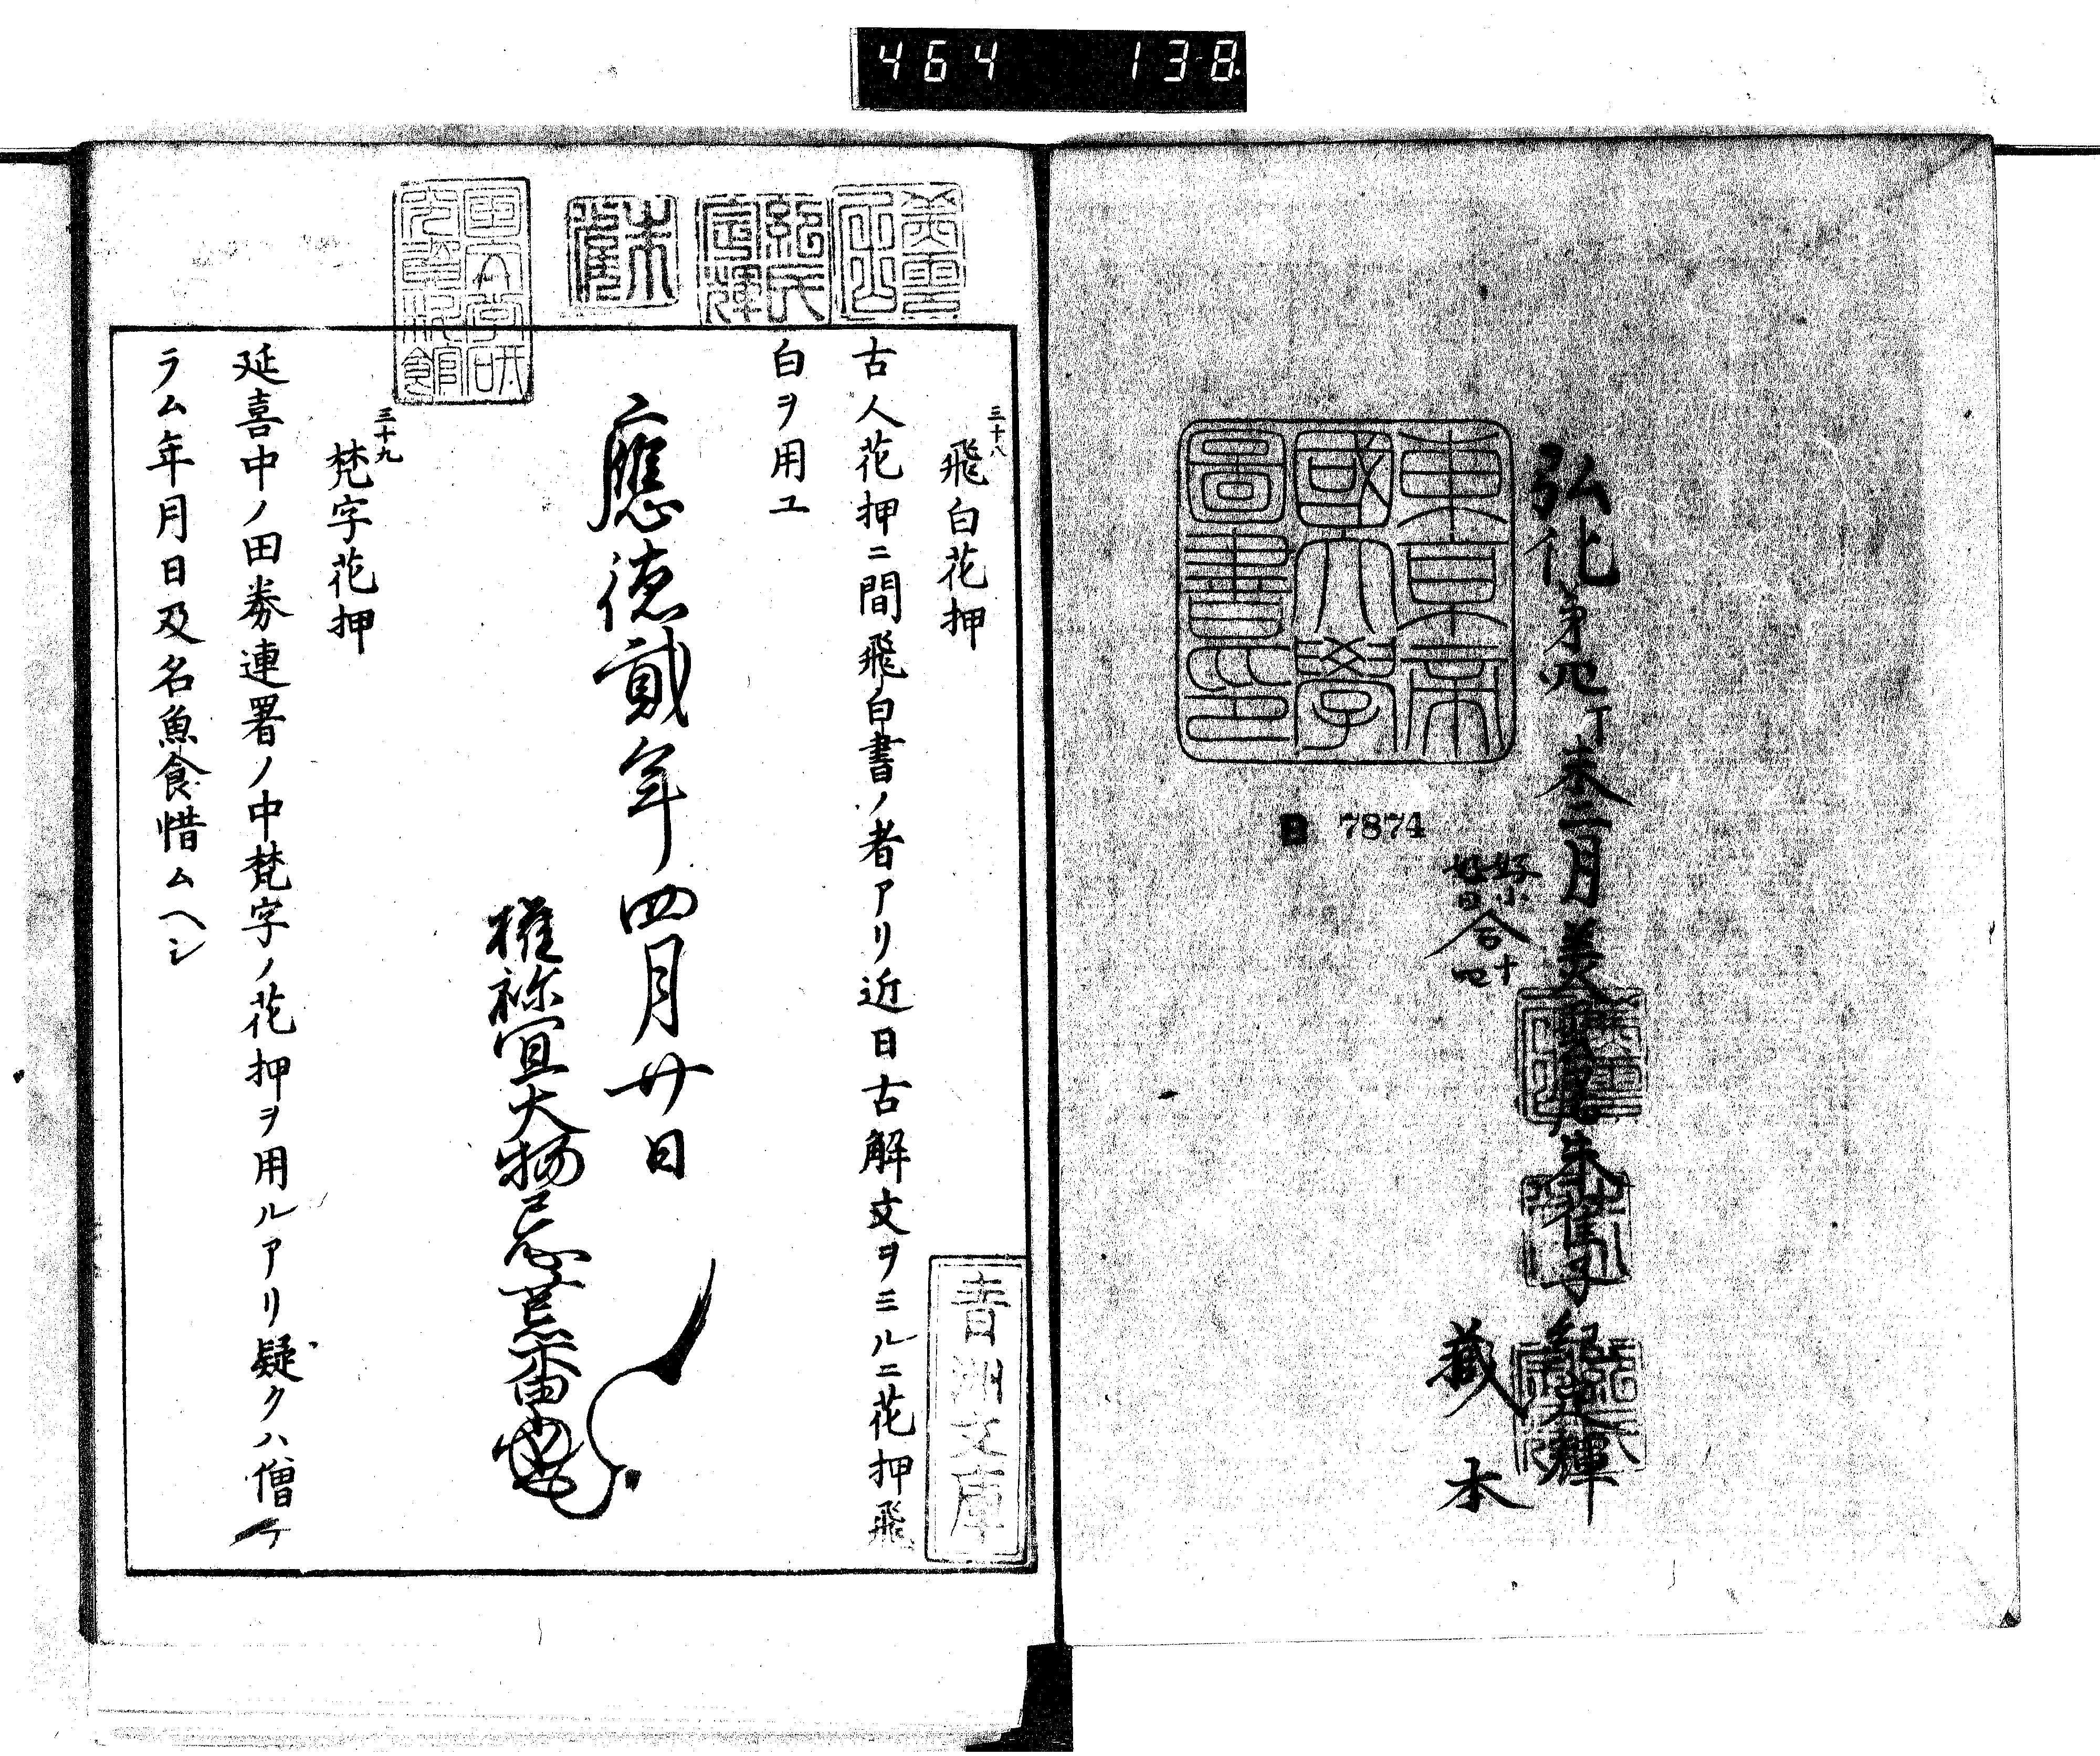 464 138
弘化第四丁未二月
朱雀子紀定輝
藏本
東京帝
國大學
圖書印
B 7874
好小
好日
合十四
三十八
飛白花押
古人花押ニ間飛白書ノ者アリ近日古解文ヲミルニ花押飛
白ヲ用ユ
應德貳年四月廿日
權祢宜大物忌荒木田
三十九
梵字花押
延喜中ノ田券連署ノ中梵字ノ花押ヲ用ルアリ疑クハ僧ケ
ラム年月日及名魚食惜ムヘシ
青洲文庫
朱雀
紀氏
定輝